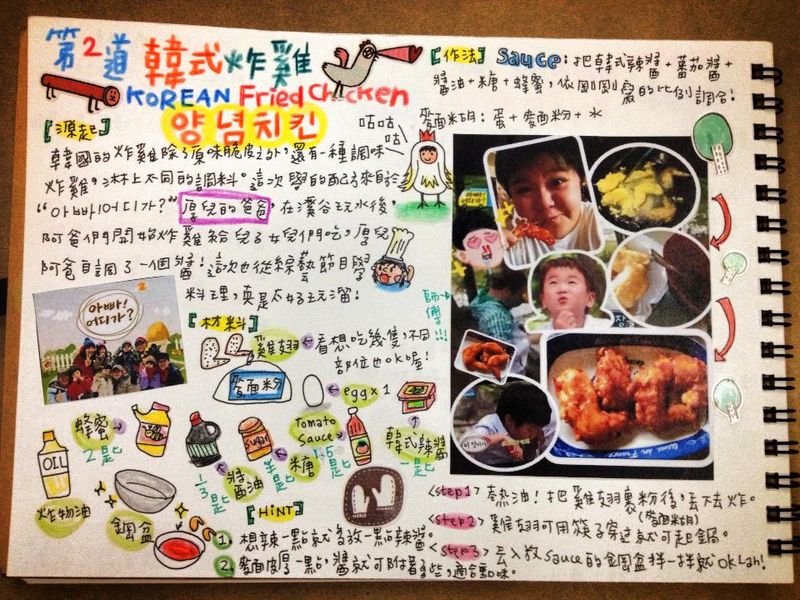 第2道 韓式炸雞
KOREAN Fried Chicken
양념치킨
【源起】
咕咕咕
韓國的炸雞除了原味脆皮之外,還有一種調味
炸雞,淋上不同的調料。這次學的配方來自於
"아빠!어디가?" 厚兒的爸爸,在溪谷玩水後,
阿爸們開始炸雞給兒子女兒們吃,厚兒
阿爸自調了一個醬!這次也從綜藝節目學
料理,真是太好玩溜!
아빠!
어디가?
【材料】
雞翅 ← 看想吃幾隻,不同
部位也OK喔!
麥面粉
egg x 1
蜂蜜
2匙
SUGAR
Tomato
Sauce
1.5匙
韓式辣醬
一匙
OIL
炸物油
鋼盆
1/3匙
醬油
半匙
糖
【HINT】
1. 想辣一點就多放一點辣醬。
2. 麥面皮厚一點,醬就可附著多些,適合重口味。
【作法】 Sauce:把韓式辣醬+蕃茄醬+
醬油+糖+蜂蜜,依剛剛寫的比例調合!
麥面糊:蛋+麥面粉+水
<step1> 熱油!把雞翅裹粉後,丟下去炸。
(麥面糊)
<step2> 雞翅可用筷子穿過就可起鍋。
<step3> 丟入放sauce的鋼盆拌一拌就OK Lah!